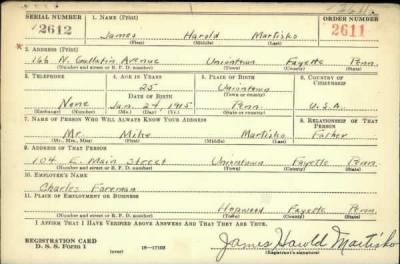 SERIAL NUMBER 1. NAME (Print) ORDER NUMBER
2612 James Harold Martisko 2611
(First) (Middle) (Last)
2. ADDRESS (Print)
166 N. Gallatin Avenue Uniontown Fayette Penn.
(Number and street or R. F. D. number) (Town) (County) (State)
3. TELEPHONE 4. AGE IN YEARS 5. PLACE OF BIRTH 6. COUNTRY OF CITIZENSHIP
25 Uniontown
DATE OF BIRTH (Town or county)
None Jan. 24, 1915 Penn. U.S.A.
(Exchange) (Number) (Mo.) (Day) (Yr.) (State or country)
7. NAME OF PERSON WHO WILL ALWAYS KNOW YOUR ADDRESS 8. RELATIONSHIP OF THAT PERSON
Mr. Mike Martisko Father
(Mr., Mrs., Miss) (First) (Middle) (Last)
9. ADDRESS OF THAT PERSON
104 E. Main Street Uniontown Fayette Penn.
(Number and street or R. F. D. number) (Town) (County) (State)
10. EMPLOYER'S NAME
Charles Foreman
11. PLACE OF EMPLOYMENT OR BUSINESS
Hopwood Fayette Penn.
(Number and street or R. F. D. number) (Town) (County) (State)
I AFFIRM THAT I HAVE VERIFIED ABOVE ANSWERS AND THAT THEY ARE TRUE.
REGISTRATION CARD
D. S. S. Form 1 (over) 16—17105 James Harold Martisko
(Registrant's signature)